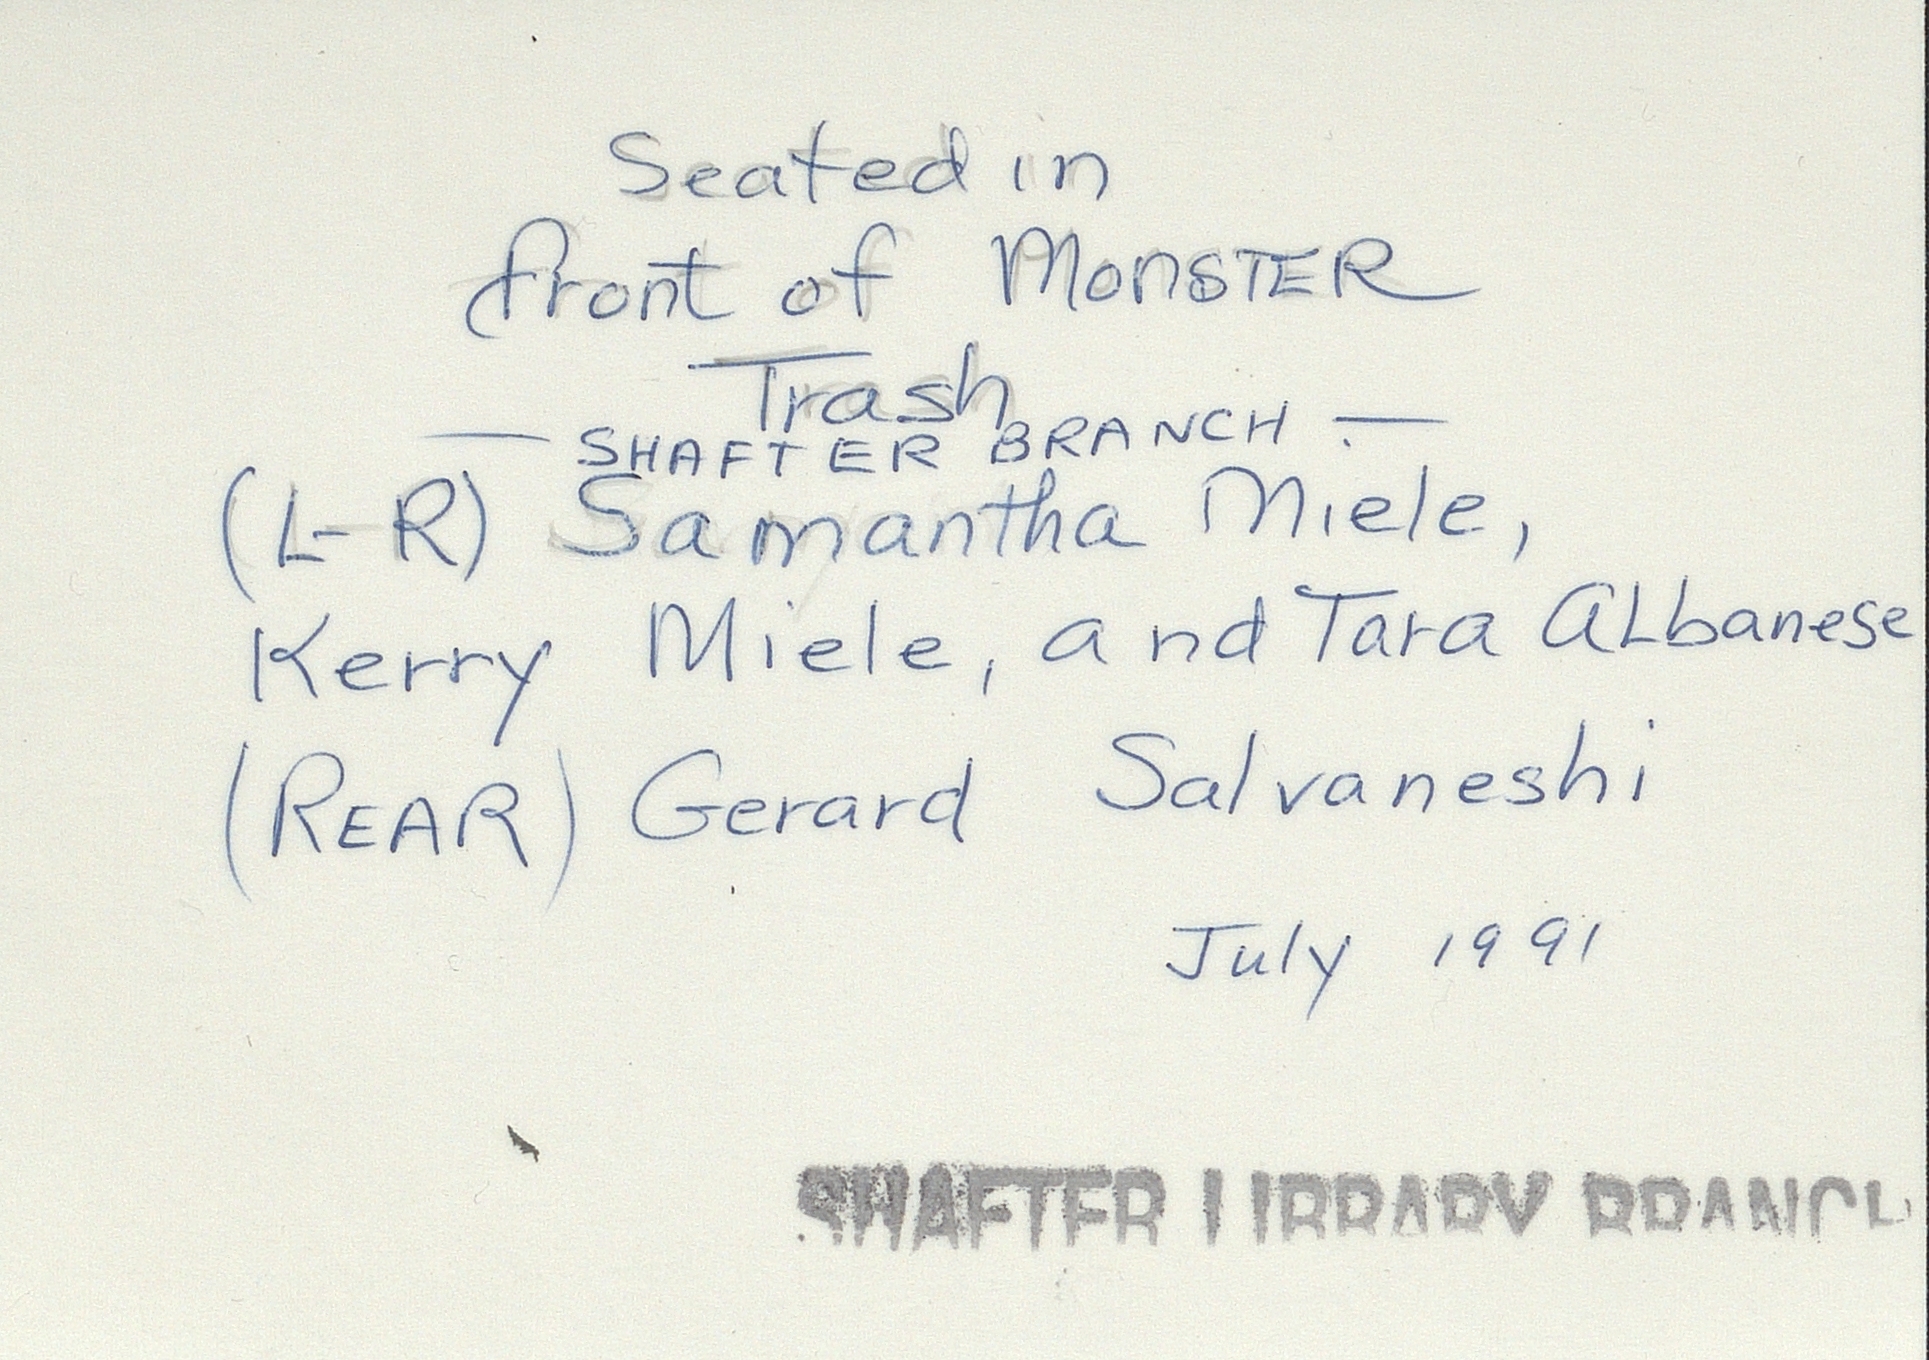 Seated in
front of MONSTER
Trash
— SHAFTER BRANCH —
(L-R) Samantha Miele,
Kerry Miele, and Tara ALbanese
(REAR) Gerard Salvaneshi
July 1991
SHAFTER LIBRARY BRANCH